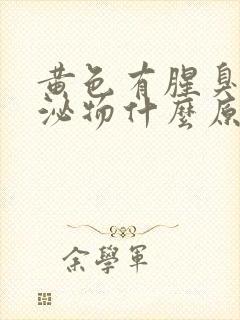 黄色有腥臭
泌物什麼原
余學軍